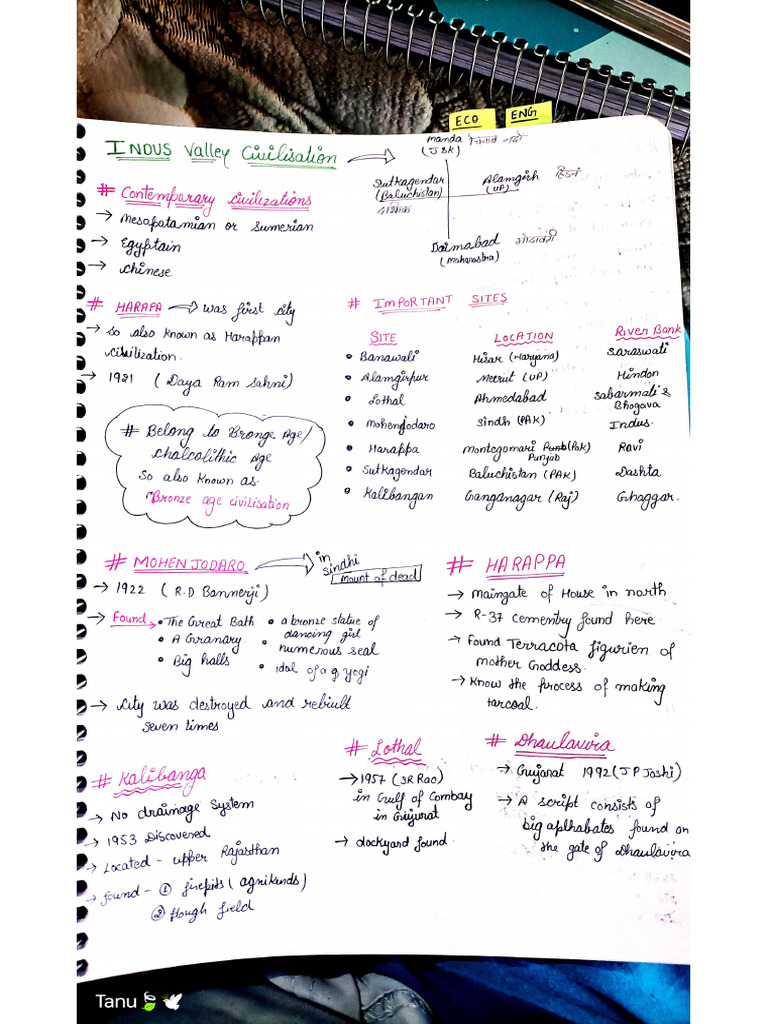 ECO
ENG
INDUS Valley Civilisation
Manda चिनाब नदी
(J&K)
Sutkagendar
(Baluchistan)
दाश्तिक
Alamgirh
(UP)
हिंडन
Daimabad गोदावरी
(Maharastra)
# Contemporary civilizations
→ Mesopatamian or Sumerian
→ Egyptain
→ Chinese
# HARAPA → was first city
→ so also known as Harappan
civilization.
→ 1921 (Daya Ram Sahni)
# Belong to Bronge Age/
Chalcolithic Age
So also known as
"Bronze age civilisation
# IMPORTANT SITES
SITE LOCATION River Bank
• Banawali Hisar (Haryana) Saraswati
• Alamgirpur Meerut (UP) Hindon
• Lothal Ahmedabad Sabarmati &
Bhogava
• Mohenjodaro Sindh (PAK) Indus.
• Harappa Montegomari (Pak) Ravi
Punjab
• Sutkagendar Baluchistan (PAK) Dashta
• Kalibangan Ganganagar (Raj) Ghaggar.
# MOHENJODARO → in
Sindhi
Mount of dead
→ 1922 (R.D Bannerji)
→ Found → • The Great Bath • a bronze statue of
dancing girl
• A Granary. numerous seal
• Big halls • idol of a g yogi
→ City was destroyed and rebiult
seven times
# HARAPPA
→ maingate of House in north
→ R-37 cementry found here.
→ found Terracota figurien of
mother Goddess.
→ Know the process of making
tarcoal.
# Kalibanga
→ No drainage System
→ 1953 Discovered
→ Located - upper Rajasthan
→ found - ① firepits (agnikunds)
② Plough field
# Lothal
→ 1957 (SR Rao)
in Gulf of Combay
in Gujurat
→ dockyard found.
# Dhaulavira
→ Gujarat 1992 (J P Joshi)
→ A script consists of
big aplhabates found on
the gate of Dhaulavira
Tanu